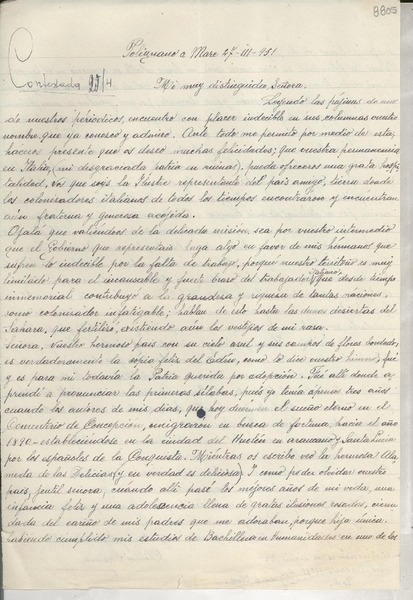 8805
Polignano a Mare 27-III-951
Contestada 25/4
Mi muy distinguida Señora.
Leyendo las páginas de uno
de nuestros periódicos, encuentro con placer indecible en sus columnas vuestro
nombre, que ya conozco y admiro. Ante todo me permito por medio de esta,
haceros presente que os deseo muchas felicidades; que vuestra permanencia
en Italia, (mi desgraciada patria en ruinas) pueda ofreceros una grata hospi-
talidad, Vos que sois la Ilustre representante del país amigo, tierra donde
los colonizadores italianos de todos los tiempos encontraron y encuentran
aún fraterna y generosa acojida.
Ojalá que valiéndoos de la delicada misión, sea por vuestro intermedio
que el Gobierno que representais haga algo en favor de mis hermanos que
sufren lo indecible por la falta de trabajo, porque nuestro territorio es muy
limitado para el incansable y fuerte brazo del trabajador italiano, que desde tiempo
inmemorial contribuyó a la grandesa y riquesa de tantas naciones
como colonizador infatigable; hablan de esto hasta las dunas desiertas del
Sahara, que fertilizó, existiendo aún los vestigios de mi rasa.
Señora, Vuestro hermoso país con su cielo azul y sus campos de flores bordados,
es verdaderamente la copia feliz del Edén, como lo dice vuestro himno; fué
y es para mi todavía la Patria querida por adopción. Fué allí donde a-
prendí a pronunciar las primeras sílabas, pués yo tenía apenas tres años
cuando los autores de mis días, que hoy duermen el sueño eterno en el
Cementerio de Concepción, emigraron en busca de fortuna, hacia el año
1890- estableciéndose en la ciudad del Huelén en araucano y Santa Lucía
por los españoles de la Conquista. Mientras os escribo veo la hermosa Ala-
meda de las Delicias (y en verdad es deliciosa) Y como poder olvidar vuestro
país, gentil señora, cuándo allí pasé los mejores años de mi vida, una
infancia feliz y una adolescencia llena de gratas ilusiones rosadas, circun
dada del cariño de mis padres que me adoraban, porque hija única.
Habiendo cumplido mis estudios de Bachillera en Humanidades en uno de los